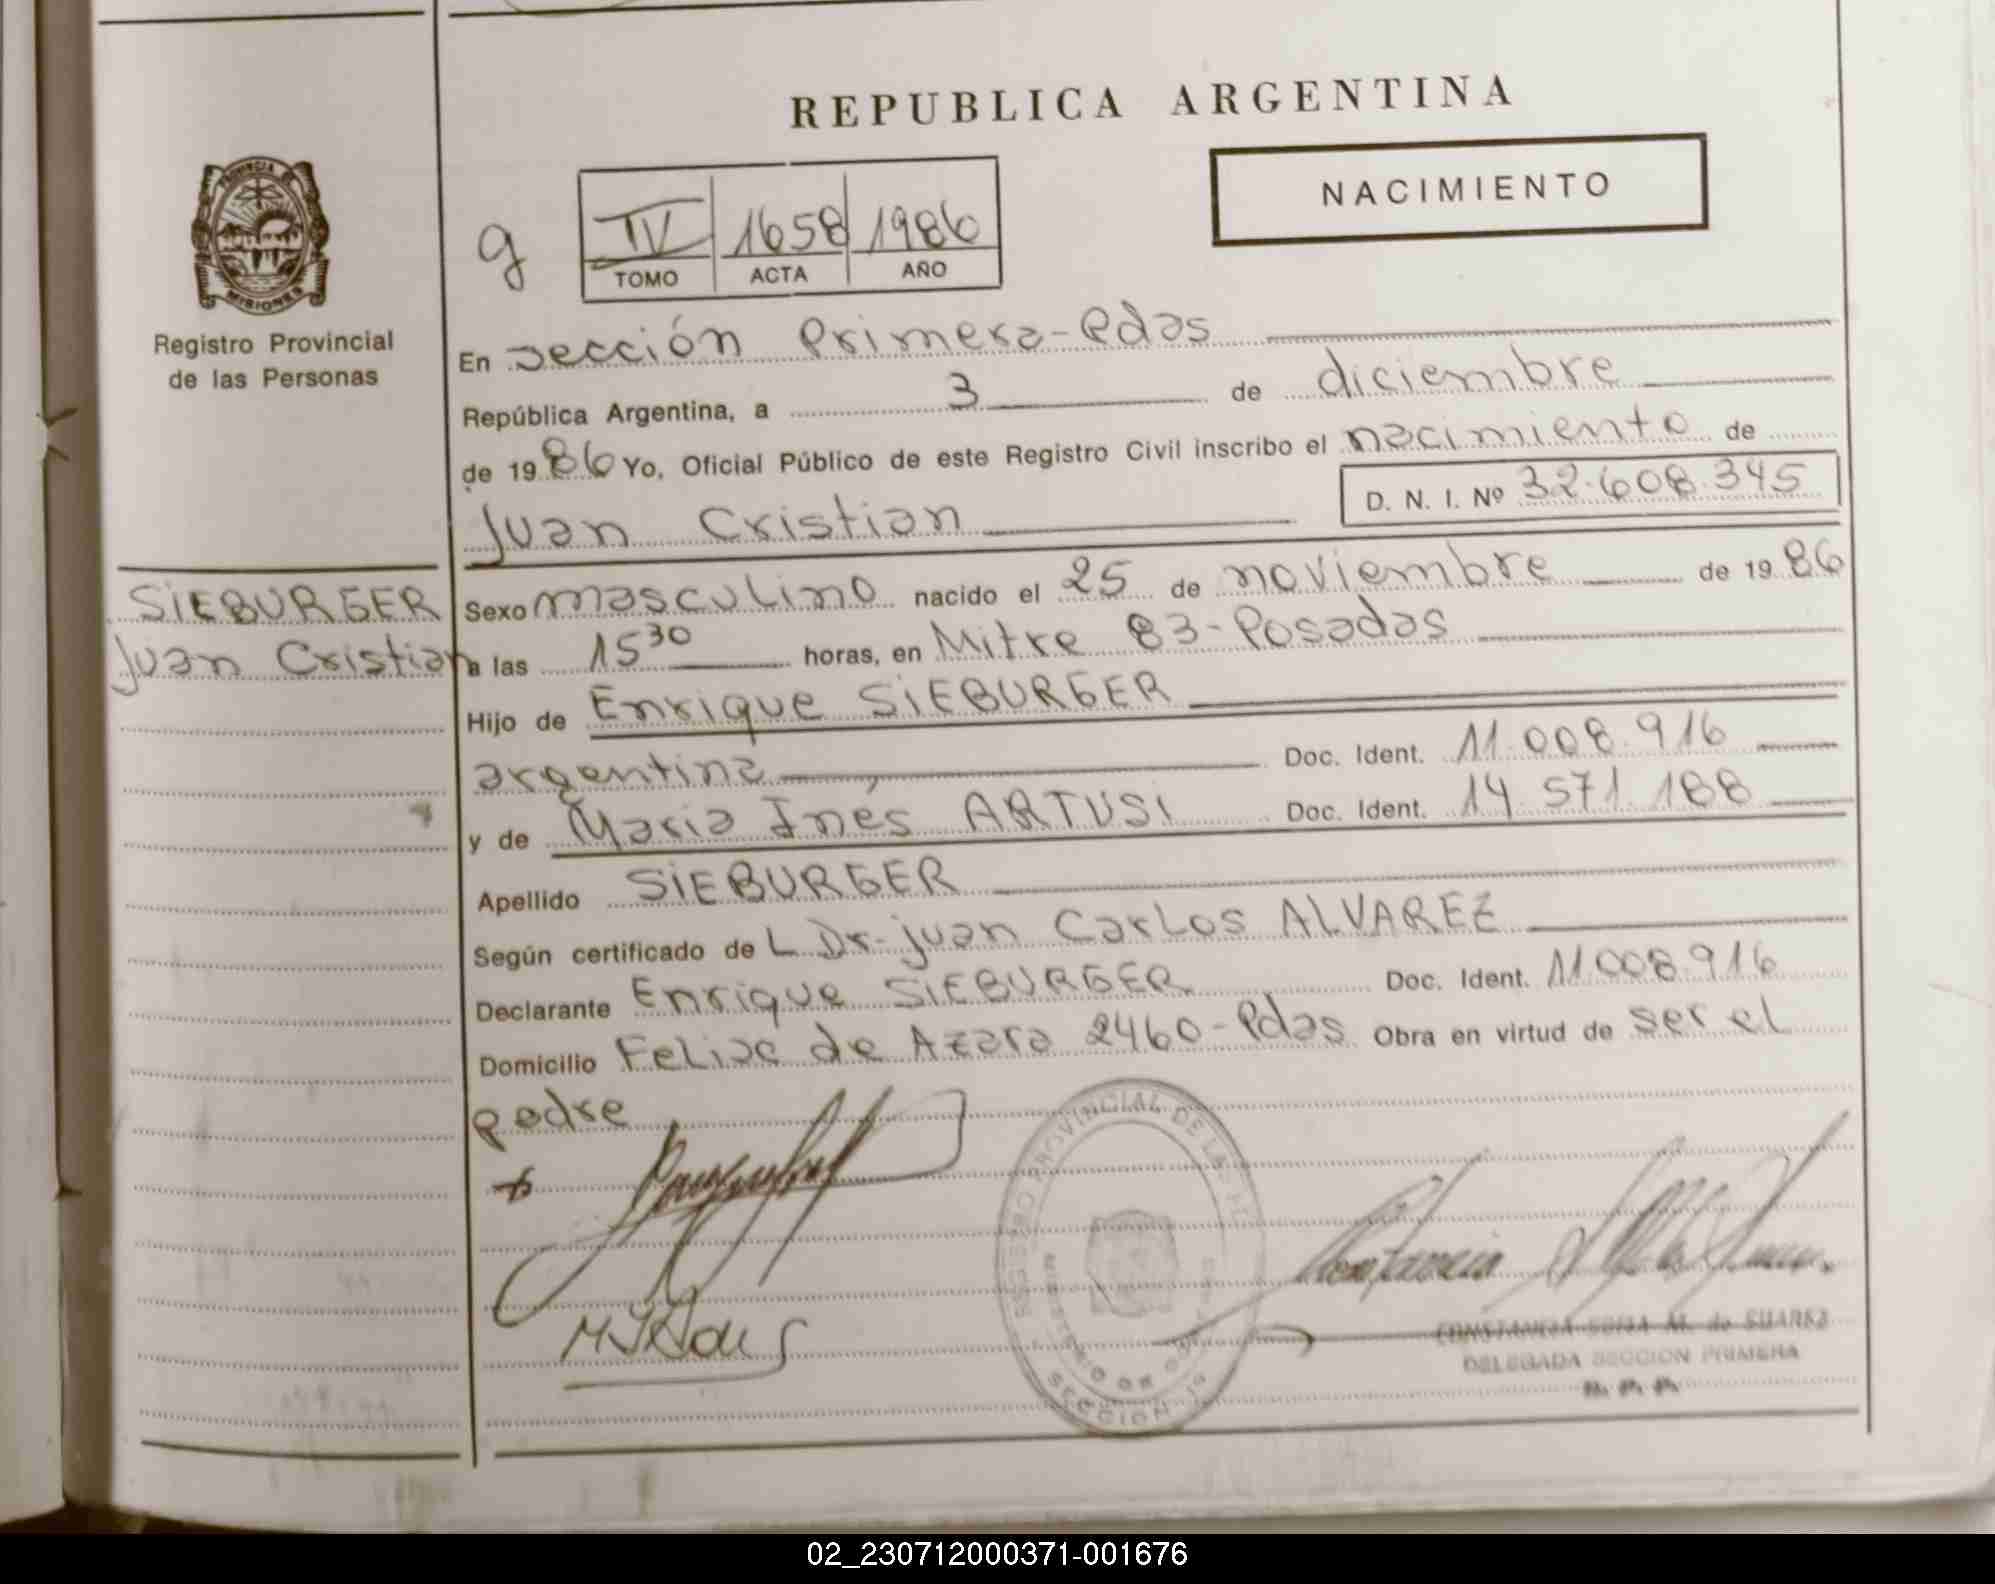 REPUBLICA ARGENTINA
NACIMIENTO
PROVINCIA DE
MISIONES
Registro Provincial
de las Personas
g
IV 1658 1986
TOMO ACTA AÑO
En sección Primera-Pdas
República Argentina, a 3 de diciembre
de 1986 Yo, Oficial Público de este Registro Civil inscribo el nacimiento de
D. N. I. Nº 32.608.345
Juan Cristian
SIEBURGER
Juan Cristian
Sexo masculino nacido el 25 de noviembre de 1986
a las 15 30 horas, en Mitre 83-Posadas
Hijo de Enrique SIEBURGER
argentina Doc. Ident. 11.008.916
y de María Inés ARTUSI Doc. Ident. 14.571.188
Apellido SIEBURGER
Según certificado de L Dr. Juan Carlos ALVAREZ
Declarante Enrique SIEBURGER Doc. Ident. 11.008.916
Domicilio Felix de Azara 2460-Pdas Obra en virtud de ser el
padre
REGISTRO PROVINCIAL DE LAS
MINISTERIO DE
SECCION 1a
CONSTANCIA SOFIA M. de SUAREZ
DELEGADA SECCION PRIMERA
R. P. P.
02_230712000371-001676